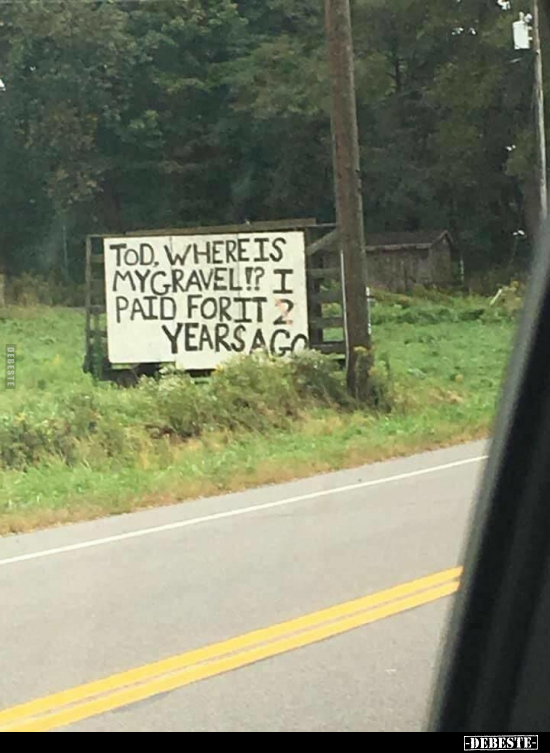 TOD, WHERE IS
MY GRAVEL!? I
PAID FOR IT 2
YEARS AGO
DEBESTE
-DEBESTE-